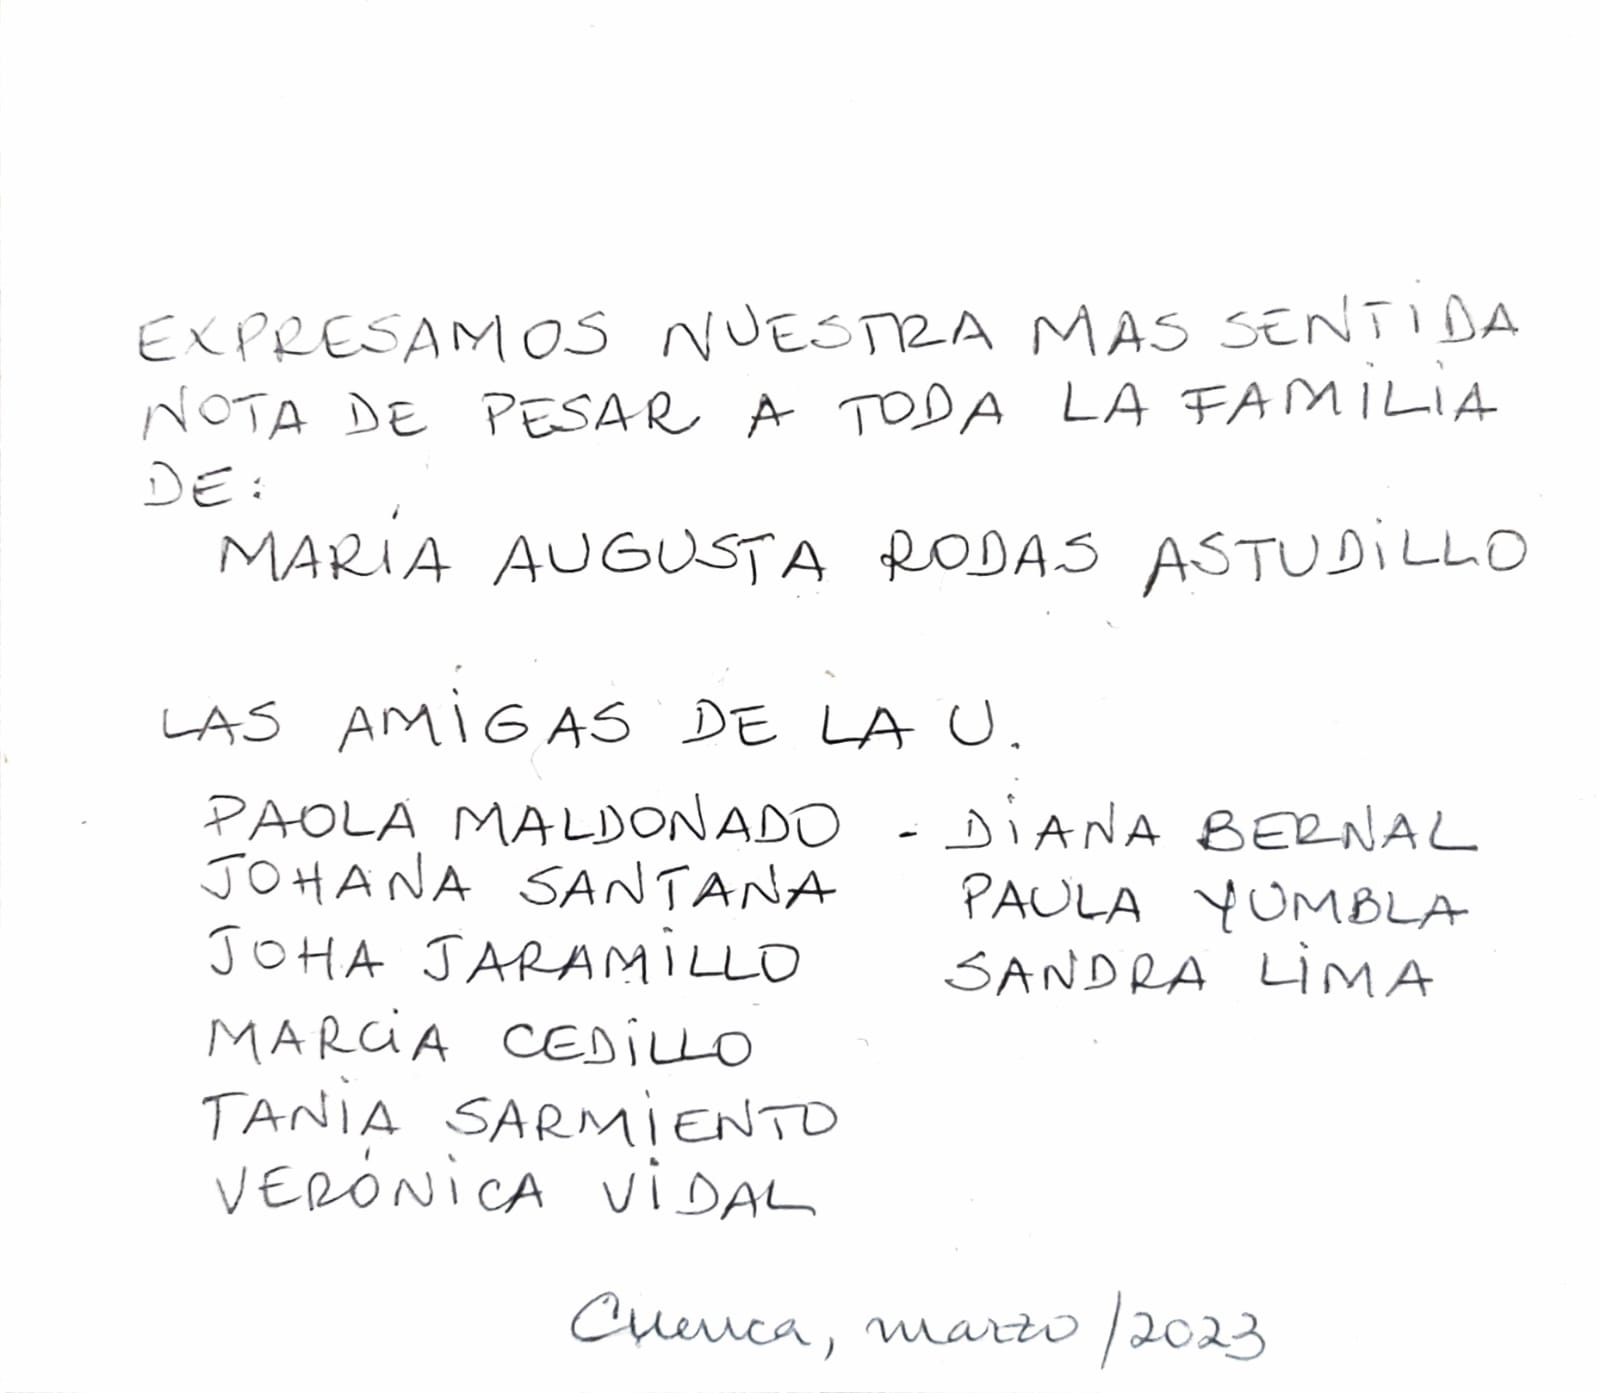 EXPRESAMOS NUESTRA MAS SENTIDA
NOTA DE PESAR A TODA LA FAMILIA
DE:
MARÍA AUGUSTA RODAS ASTUDILLO
LAS AMIGAS DE LA U.
PAOLA MALDONADO - DIANA BERNAL
JOHANA SANTANA PAULA YUMBLA
JOHA JARAMILLO SANDRA LIMA
MARCIA CEDILLO
TANIA SARMIENTO
VERÓNICA VIDAL
Cuenca, marzo/2023